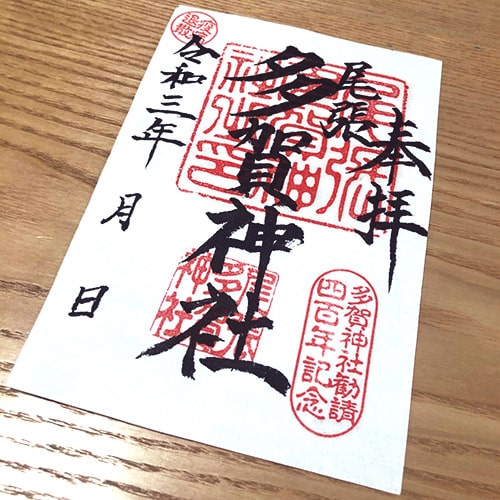 奉拝
尾張
多賀神社
令和三年
月
日
多賀神社勧請
四百年記念